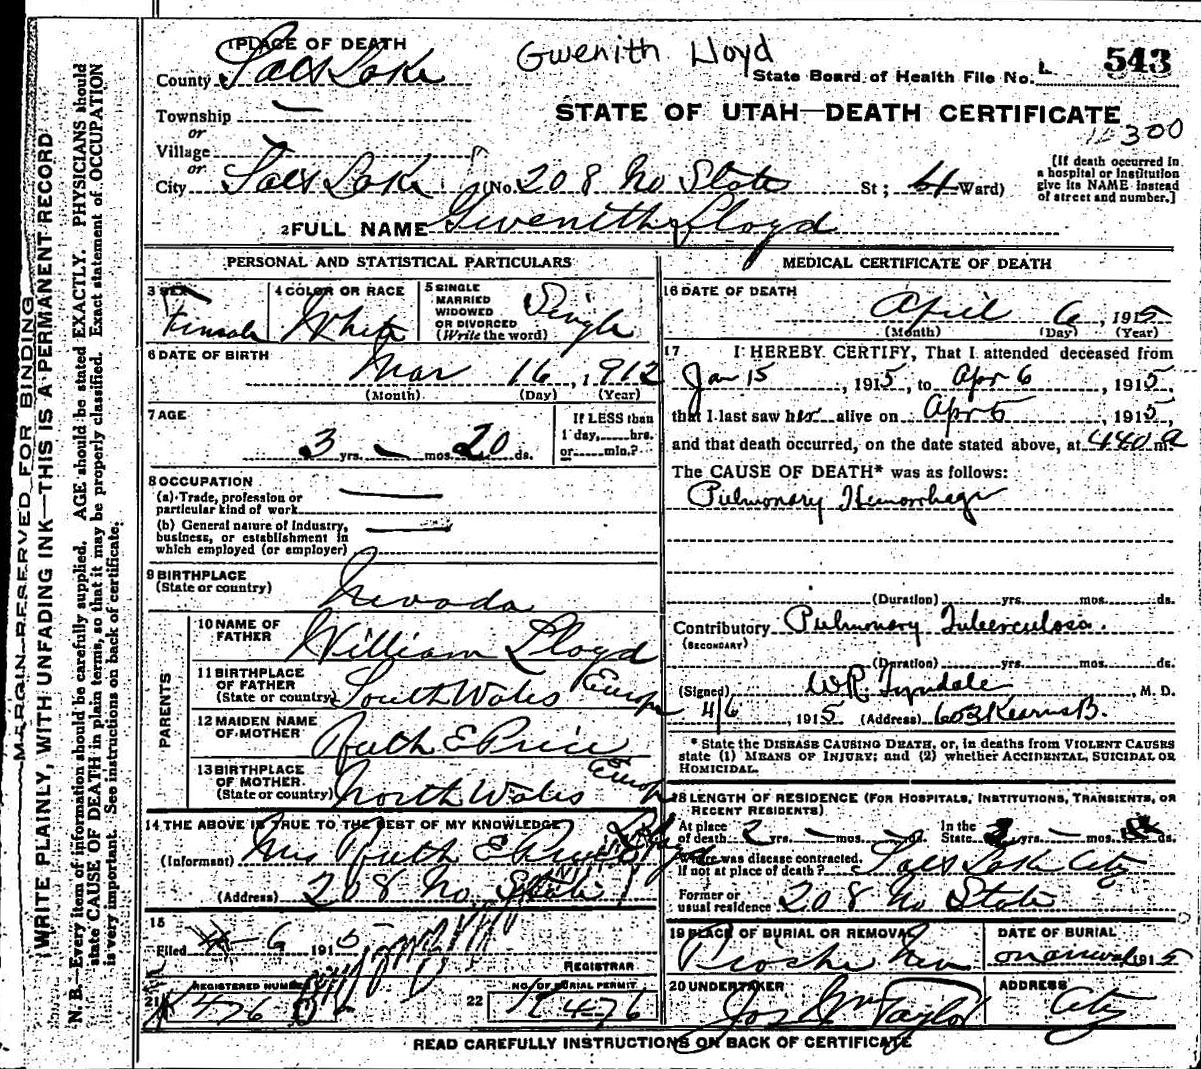 MARGIN RESERVED FOR BINDING
WRITE PLAINLY, WITH UNFADING INK—THIS IS A PERMANENT RECORD
N. B.—Every item of information should be carefully supplied. AGE should be stated EXACTLY. PHYSICIANS should
state CAUSE OF DEATH in plain terms, so that it may be properly classified. Exact statement of OCCUPATION
is very important. See instructions on back of certificate.
Gwenith Lloyd
1 PLACE OF DEATH
County Salt Lake
State Board of Health File No. 543
STATE OF UTAH—DEATH CERTIFICATE
Township
or
Village
or
City Salt Lake (No. 208 No State St; 4 Ward)
300
[If death occurred in
a hospital or institution
give its NAME instead
of street and number.]
2 FULL NAME Gwenith Lloyd
PERSONAL AND STATISTICAL PARTICULARS
3 SEX
Female
4 COLOR OR RACE
White
5 SINGLE
MARRIED
WIDOWED
OR DIVORCED
(Write the word)
Single
6 DATE OF BIRTH
Mar 16, 1912
(Month) (Day) (Year)
7 AGE
3 yrs. — mos. 20 ds.
If LESS than
1 day, hrs.
or min.?
8 OCCUPATION
(a) Trade, profession or
particular kind of work
(b) General nature of industry,
business, or establishment in
which employed (or employer)
9 BIRTHPLACE
(State or country)
Nevada
PARENTS
10 NAME OF
FATHER
William Lloyd
11 BIRTHPLACE
OF FATHER
(State or country) South Wales Europe
12 MAIDEN NAME
OF MOTHER
Ruth E Price
13 BIRTHPLACE
OF MOTHER.
(State or country) North Wales Europe
14 THE ABOVE IS TRUE TO THE BEST OF MY KNOWLEDGE
(Informant) Mrs Ruth E Price Lloyd
(Address) 208 No. State
15
Filed 6 1915
REGISTRAR
21 REGISTERED NUMBER
476
22 NO. OF BURIAL PERMIT
476
MEDICAL CERTIFICATE OF DEATH
16 DATE OF DEATH
April 6, 1915
(Month) (Day) (Year)
17 I HEREBY CERTIFY, That I attended deceased from
Jan 15, 1915, to Apr 6, 1915,
that I last saw her alive on Apr 5, 1915,
and that death occurred, on the date stated above, at 440 a m.
The CAUSE OF DEATH* was as follows:
Pulmonary Hemorrhage
(Duration) yrs. mos. ds.
Contributory Pulmonary Tuberculosis.
(SECONDARY)
(Duration) yrs. mos. ds.
(Signed) W.R. Tyndale M. D.
4/6, 1915 (Address) 603 Kearns B.
* State the DISEASE CAUSING DEATH, or, in deaths from VIOLENT CAUSES
state (1) MEANS OF INJURY; and (2) whether ACCIDENTAL, SUICIDAL OR
HOMICIDAL.
18 LENGTH OF RESIDENCE (FOR HOSPITALS, INSTITUTIONS, TRANSIENTS, OR
RECENT RESIDENTS)
At place
of death 2 yrs. — mos. ds.
In the
State 2 yrs. — mos. ds.
Where was disease contracted.
If not at place of death? Salt Lake City
Former or
usual residence 208 No State
19 PLACE OF BURIAL OR REMOVAL
Pioche Nev
DATE OF BURIAL
on arrival 1915
20 UNDERTAKER
Jos Wm Taylor
ADDRESS
City
READ CAREFULLY INSTRUCTIONS ON BACK OF CERTIFICATE